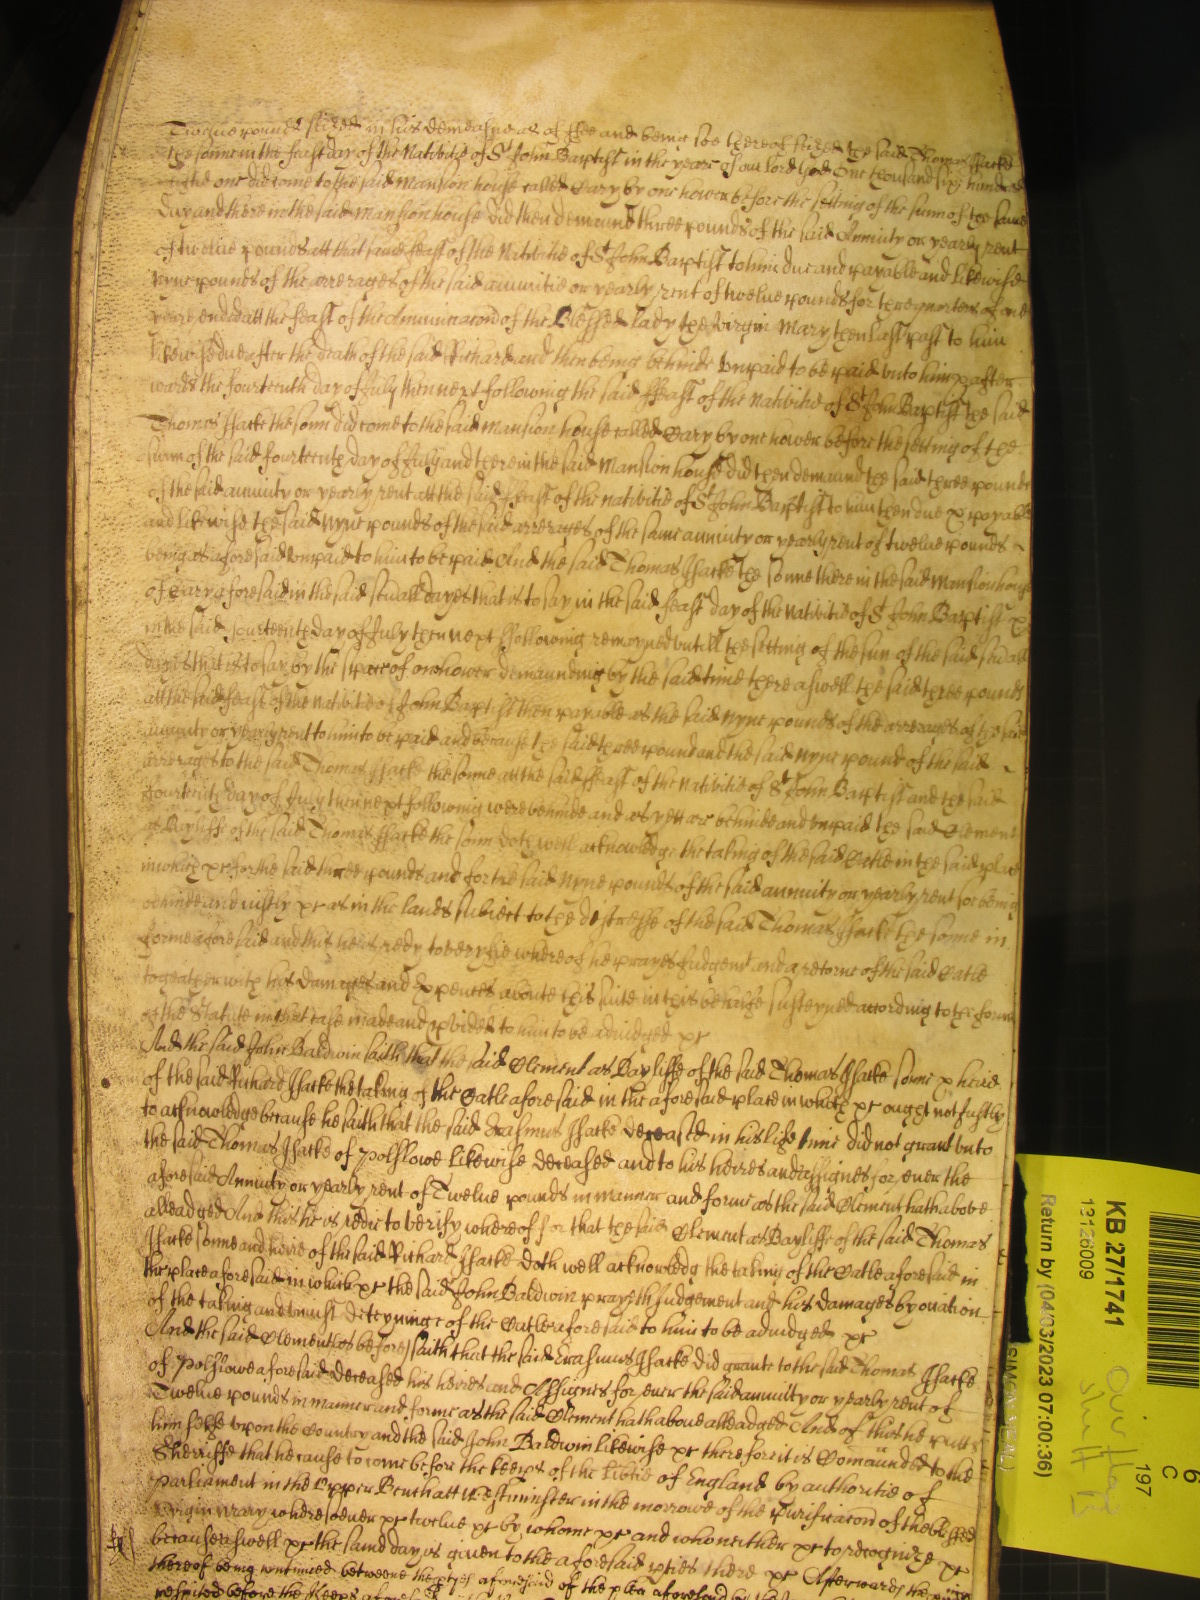 pound seized in his demeasne as of ffee and being soe thereof seized the said Thomas Isacke
the sonne in the feast day of the Nativitie of St John Baptist in the yeare of our Lord God One thousand six hundred
one did come to the said Mansion house called by one hower before the setting of the sunn of the same
day and there in the said Mansion house did then demaund three pounds of the said Annuity or yearly rent
of twelve pounds att that same feast of the Nativitie of St John Baptist to him due and payable and likewise
nyne pounds of the arrerages of the said annuitie or yearly rent of twelve pounds for three quarters of one
yeare ended att the feast of the Annunciacon of the Blessed lady the Virgin Mary then last past to him
likewise due after the death of the said Richard and then being behinde unpaid to be paid unto him & after
wards the fourteenth day of July then next following the said ffeast of the Nativitie of St John Baptist the said
Thomas Isacke the sonn did come to the said Mansion house called by one hower before the setting of the
sunn of the said fourteenth day of July and there in the said Mansion house did then demaund the said three pounds
of the said annuity or yearly rent att the said ffeast of the nativitie of St John Baptist to him then due & payable
and likewise the said nyne pounds of the said arrerages of the same annuity or yearly rent of twelve pounds
being as aforesaid unpaid to him to be paid And the said Thomas Isacke the sonne there in the said Mansion house
of aforesaid in the said severall dayes that is to say in the said feast day of the Nativitie of St John Baptist &
in the said fourteenth day of July then next ffollowing remayned untill the setting of the sun of the said severall
dayes that is to say by the space of one hower demaunding by the said time there aswell the said three pounds
att the said feast of the Nativitie of St John Baptist then payable as the said nyne pounds of the arrerages of the said
annuity or yearly rent to him to be paid and because the said three pound and the said nyne pound of the said
arrerages to the said Thomas Isacke the sonne att the said ffeast of the Nativitie of St John Baptist and the said
fourteenth day of July then next following were behinde and as yett are behinde and unpaid the said Clement
as Bayliffe of the said Thomas Isacke the sonn doth well acknowledge the taking of the said Catle in the said place
in which &c for the said three pounds and for the said nyne pounds of the said annuity or yearly rent soe being
behinde and justly &c as in the lands subject to the distresse of the said Thomas Isacke the sonne in
forme aforesaid and this hee is redy to verifie whereof he prayes Judgemt and a retorne of the said Catle
togeather with his damages and Expences about this suite in this behalfe susteyned according to the forme
of the Statute in that case made and pvided to him to be adiudged &c
And the said John Baldwin saith that the said Clement as Bayliffe of the said Thomas Isacke sonne & heire
of the said Richard Isacke the taking of the Catle aforesaid in the aforesaid place in which &c ought not Justly
to acknowledge because he saith that the said Erasmus Isacke deceased in his life time did not grant unto
the said Thomas Isacke of Polslowe likewise deceased and to his heires and assignes for ever the
aforesaid Annuity or yearly rent of Twelve pounds in manner and forme as the said Clement hath above
alleadged And this he is redie to verify whereof for that the said Clement as Bayliffe of the said Thomas
Isacke sonne and heire of the said Richard Isacke doth well acknowledg the taking of the Catle aforesaid in
the place aforesaid in which &c the said John Baldwin prayeth Judgement and his damages by occation
of the taking and uniust deteyninge of the Catle aforesaid to him to be adiudged &c
And the said Clement as before saith that the said Erasmus Isacke did grante to the said Thomas Isacke
of Polslowe aforesaid deceased his heires and Assignes for ever the said annuity or yearly rent of
Twelve pounds in manner and forme as the said Clement hath above alleadged And of this he putts
him selfe upon the Country and the said John Baldwin likewise &c therefore it is Comaunded to the
Sherriffe that he cause to come before the keeps of the libtie of England by authoritie of
Parliament in the Upper Bench att Westminster in the morrowe of the Purificacon of the blessed
Virgin Mary wheresoever &c twelve &c by whome &c and who neither &c to recognize &c
because aswell &c the same day is given to the aforesaid pties there &c Afterwards the
thereof being continued betweene the pties aforesaid of the plea aforesaid
respited before the Keeps
KB 27/1741
13126009
Return by (04/03/2023 07:00:36)
197
C
6